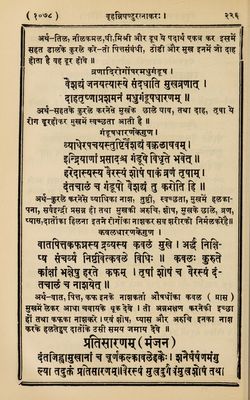 (१०७८) बृहन्निघण्टुरत्नाकरः। २२६
अर्थ-तिल, नीलकमल, घी, मिश्री और दूध ये पदार्थ एकत्र कर इसमें
सहत डालके कुरले करे-तो पित्तसंबंधी, ठोडी और मुख इनमें जो दाह
होता है वह दूर होवे ॥
व्रणादिरोगोंपरमधुगंडूष.
वैशद्यं जनयत्यास्ये संदधाति मुखव्रणान् ।
दाहतृष्णाप्रशमनं मधुगंडूषधारणम् ॥
अर्थ-सहतके कुरले करनेसे मुखके छाले, घाव, तथा दाह, तृषा ये
रोग दूरहोकर मुखमें स्वच्छता आती है ॥
गंडूषधारणकेगुण.
व्याधेरपचयस्तुष्टिर्वैशद्यं वक्रलाघवम् ।
इन्द्रियाणां प्रसादश्च गंडूषे विधृते भवेत् ॥
हरेदास्यस्य वैरस्यं शोषं पाकं व्रणं तृषाम् ।
दंतचालं च गंडूषो वैशद्यं तु करोति हि ॥
अर्थ-कुरले करनेसे व्याधिका नाश, तुष्टी, स्वच्छता, मुखमें हलका-
पना, सर्वइन्द्री प्रसन्न हो तथा मुखकी अरुचि, शोष, मुखके छाले, व्रण,
प्यास, दातोंका हिलना इतने रोगोंका नाशकरके सब शरीरकी निर्मलकरेहै॥
कवलधारणकेगुण.
वातपित्तकफघ्नस्य द्रव्यस्य कवलं मुखे । अर्द्धं निक्षि-
प्य संचर्व्य निष्ठीवेत्कवले विधिः ॥ कवलः कुरुते
कांक्षां भक्षेषु हरते कफम् । तृषां शोषं च वैरस्यं दं-
तचालं च नाशयेत् ॥
अर्थ-वात, पित्त, कफ इनके नाशकर्ता औषधोंका कवल (ग्रास)
मुखमें लेकर आधा चबायके थूक देवे । तो अन्नभक्षण करनेकी इच्छा
करके कफका नाशकरे।एवं शोष, प्यास और अरुचि इनका नाश
करके हलतेहुए दातोंको उसी समय जमाय देवे ॥
प्रतिसारणम् (मंजन)
दंतजिह्वामुखानां च चूर्णकल्कावलेहकैः । शनैर्घर्षणमंगु
ल्या तदुक्तं प्रतिसारणम्॥वैरस्यं मुखदुर्गंधं मुखशोषं तथा